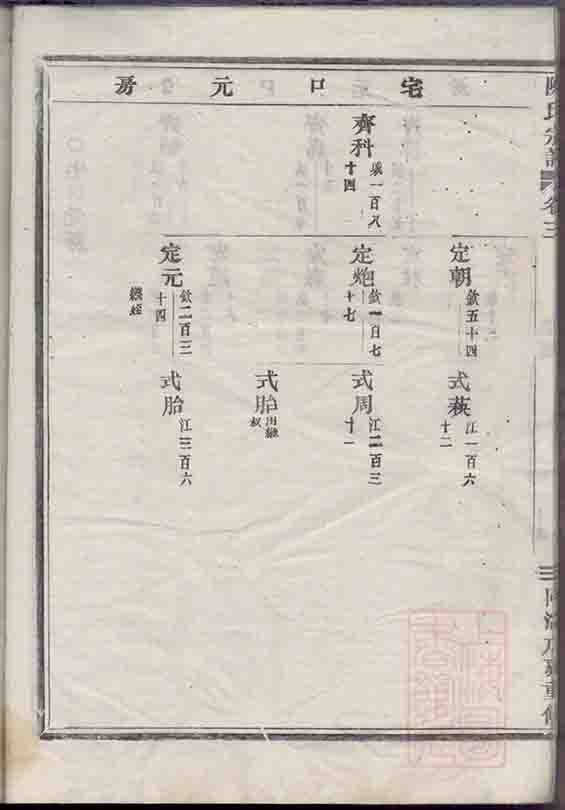 宅口元房
齊科
承一百八
十四
定朝
欽五十四
定炮
欽一百七
十七
定元
欽二百三
十四
繼姪
式萩
江一百六
十二
式周
江二百三
十一
式胎
出繼
叔
式胎
江三百六
陳氏宗譜
卷三